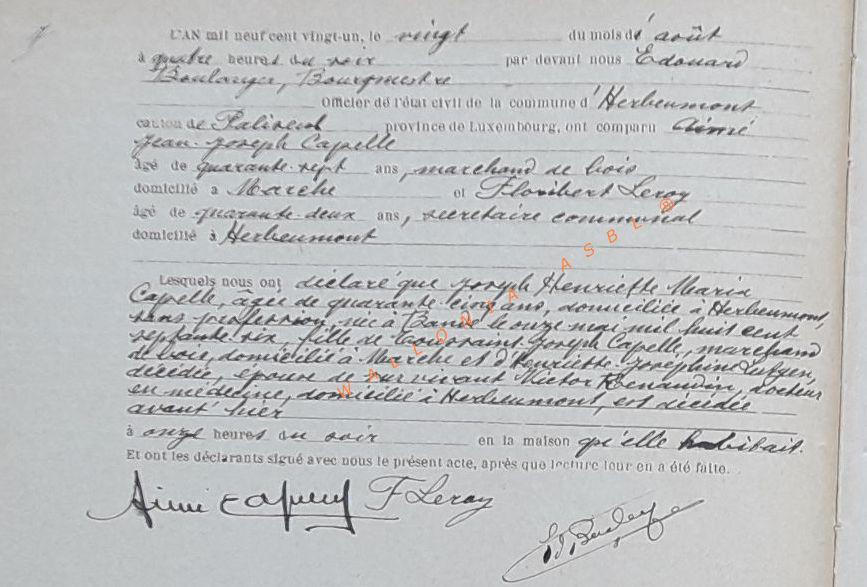 L'AN mil neuf cent vingt-un, le vingt du mois d' août
à quatre heures du soir par devant nous Edouard
Boulanger, Bourgmestre
Officier de l'état civil de la commune d'Herbeumont
canton de Paliseul province de Luxembourg, ont comparu Aimé
Jean-Joseph Capelle
âgé de quarante-sept ans, marchand de bois
domicilié à Marche et Floribert Leroy
âgé de quarante-deux ans, secretaire communal
domicilié à Herbeumont
Lesquels nous ont déclaré que Joseph Henriette Maria
Capelle, âgée de quarante cinq ans, domiciliée à Herbeumont,
sans profession, née à Bande le onze mai mil huit cent
septante six, fille de Toussaint Joseph Capelle, marchand
de bois, domicilié à Marche et d'Henriette Joséphine
décédée, épouse de survivant Victor Renaudin, docteur
en médecine, domicilié à Herbeumont, est décédée
avant hier
à onze heures du soir en la maison qu'elle habitait.
Et ont les déclarants signé avec nous le présent acte, après que lecture leur en a été faite.
Aimé Capelle F Leroy
Ed Boulanger
WALLONIA ASBL ®